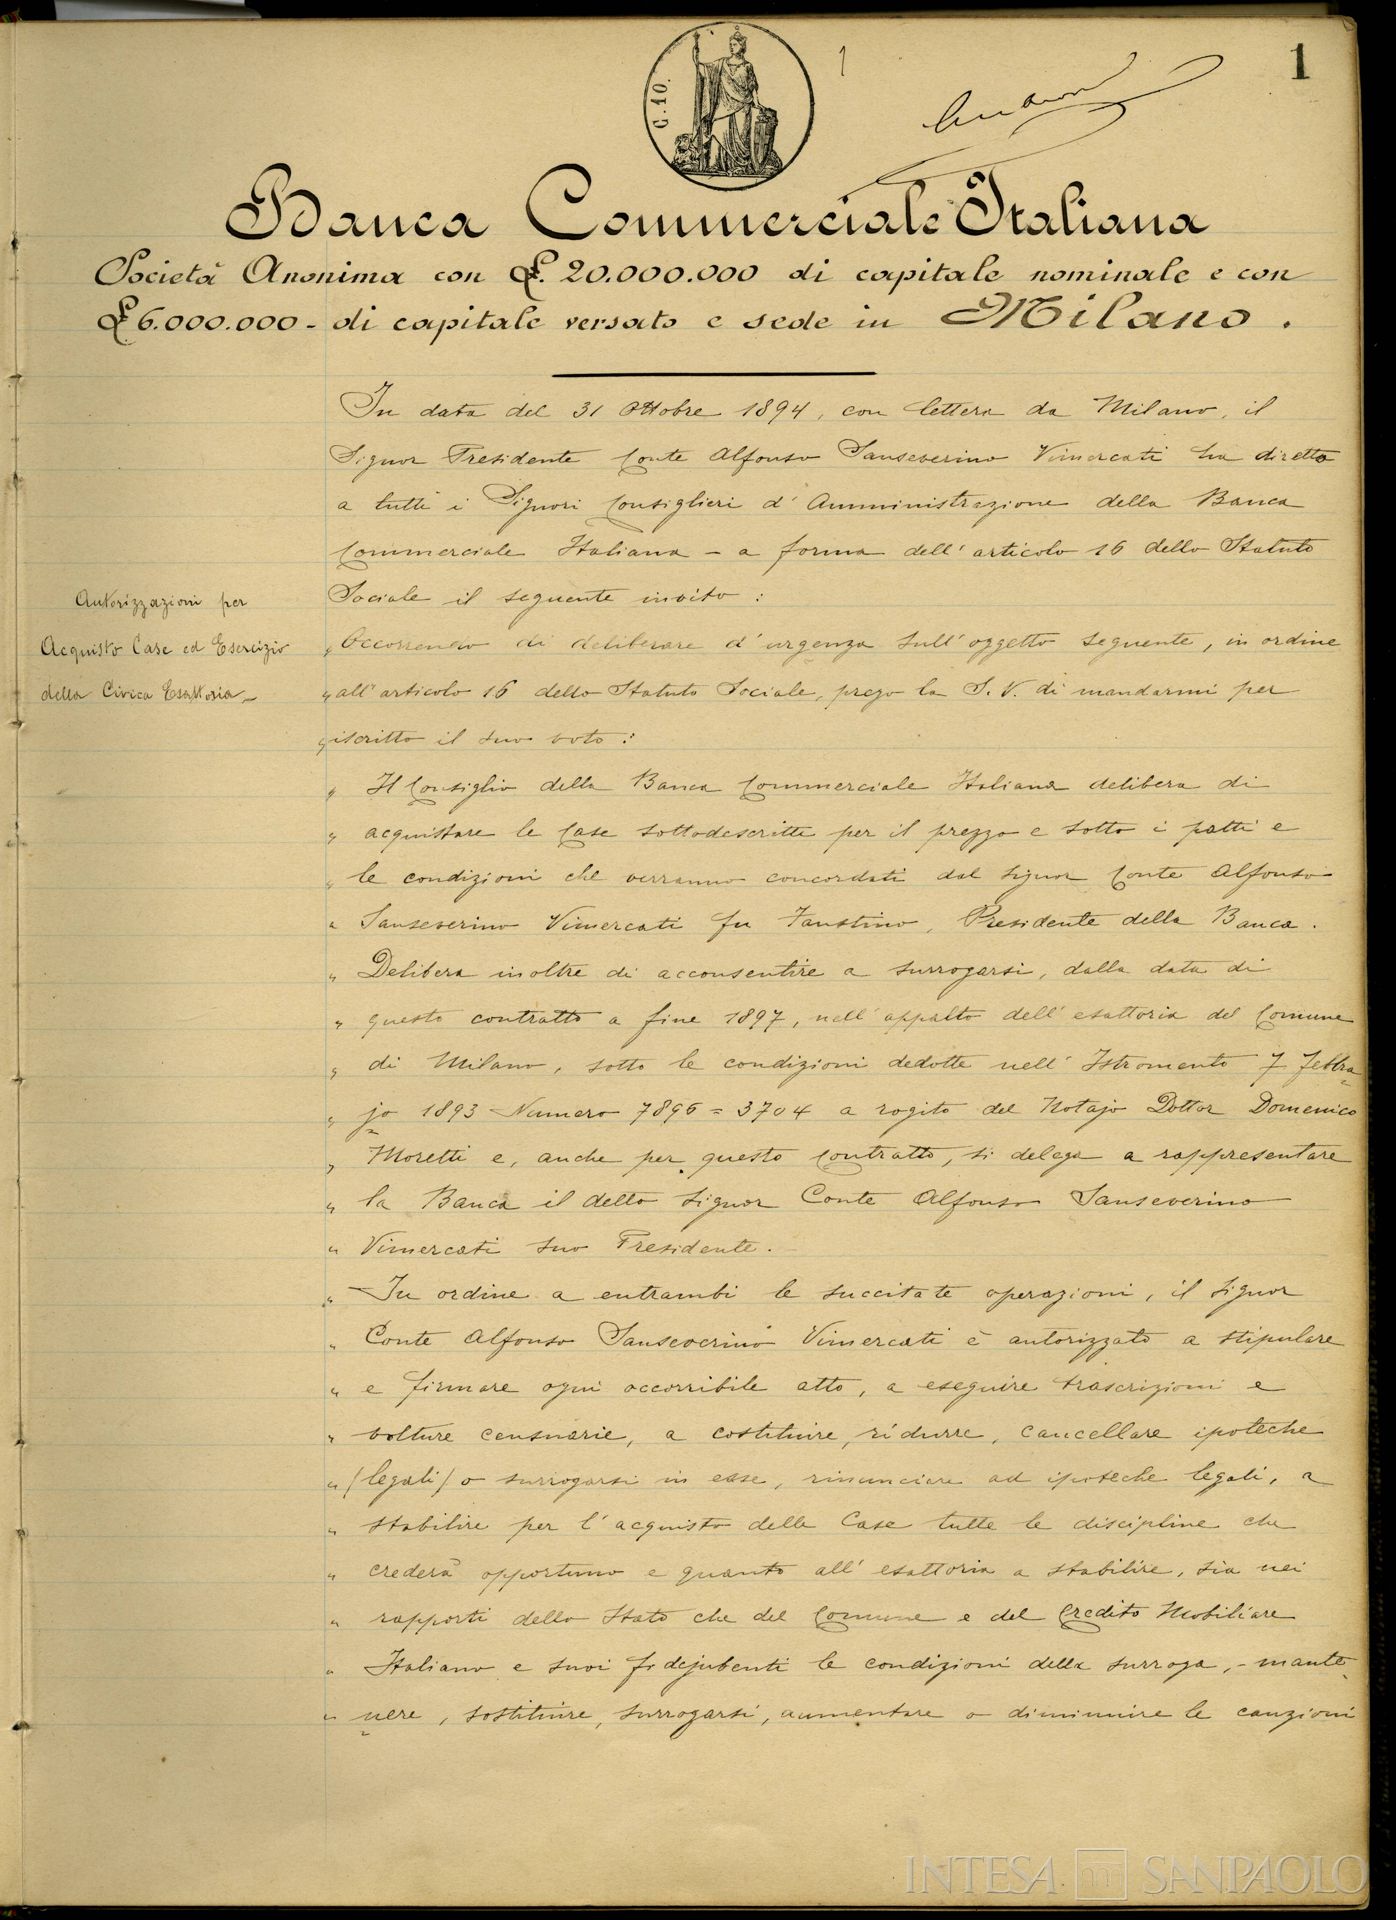 1
C. 10.
1
Banca Commerciale Italiana
Società Anonima con £. 20.000.000 di capitale nominale e con
£ 6.000.000 - di capitale versato e sede in Milano.
In data del 31 Ottobre 1894, con lettera da Milano, il
Signor Presidente Conte Alfonso Sanseverino Vimercati ha diretto
a tutti i Signori Consiglieri d'Amministrazione della Banca
Commerciale Italiana - a forma dell'articolo 16 dello Statuto
Sociale il seguente invito:
Autorizzazioni per
Acquisto Case ed Esercizio
della Civica Esattoria -
„ Occorrendo di deliberare d'urgenza sull'oggetto seguente, in ordine
„ all'articolo 16 dello Statuto Sociale, prego la S. V. di mandarmi per
„ iscritto il suo voto:
„ Il Consiglio della Banca Commerciale Italiana delibera di
„ acquistare le Case sottodescritte per il prezzo e sotto i patti e
„ le condizioni che verranno concordati dal Signor Conte Alfonso
„ Sanseverino Vimercati fu Faustino, Presidente della Banca.
„ Delibera inoltre di acconsentire a surrogarsi, dalla data di
„ questo contratto a fine 1897, nell'appalto dell'esattoria del Comune
„ di Milano, sotto le condizioni dedotte nell'Istromento 7 Febbra-
„ jo 1893 Numero 7896=3704 a rogito del Notajo Dottor Domenico
„ Moretti e, anche per questo Contratto, si delega a rappresentare
„ la Banca il detto Signor Conte Alfonso Sanseverino
„ Vimercati suo Presidente.
„ In ordine a entrambi le succitate operazioni, il Signor
„ Conte Alfonso Sanseverino Vimercati è autorizzato a stipulare
„ e firmare ogni occorribile atto, a eseguire trascrizioni e
„ volture censuarie, a costituire, ridurre, cancellare ipoteche
„ (legali) o surrogarsi in esse, rinunciare ad ipoteche legali, a
„ stabilire per l'acquisto delle Case tutte le discipline che
„ crederà opportuno e quanto all'esattoria a stabilire, sia nei
„ rapporti dello Stato che del Comune e del Credito Mobiliare
„ Italiano e suoi fidejubenti le condizioni della surroga, - mante-
„ nere, sostituire, surrogarsi, aumentare o diminuire le cauzioni
INTESA SANPAOLO